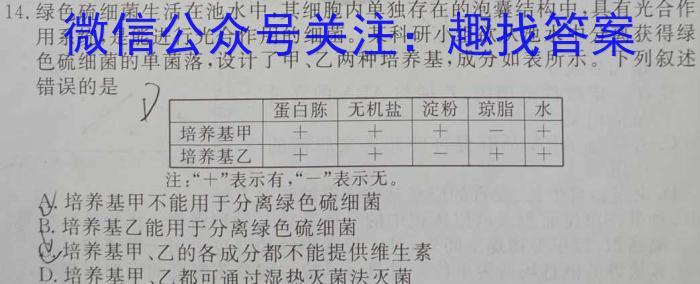 14. 绿色硫细菌生活在池水中,其细胞内单独存在的泡囊结构中,具有光合作
用系
微信公众号关注：趣找答案
色硫细菌的单菌落,设计了甲、乙两种培养基,成分如表所示。下列叙述
错误的是
蛋白胨 无机盐 淀粉 琼脂 水
培养基甲 + + + − +
培养基乙 + + − + +
注:“+”表示有,“−”表示无。
A. 培养基甲不能用于分离绿色硫细菌
B. 培养基乙能用于分离绿色硫细菌
C. 培养基甲、乙的各成分都不能提供维生素
D. 培养基甲、乙都可通过湿热灭菌法灭菌